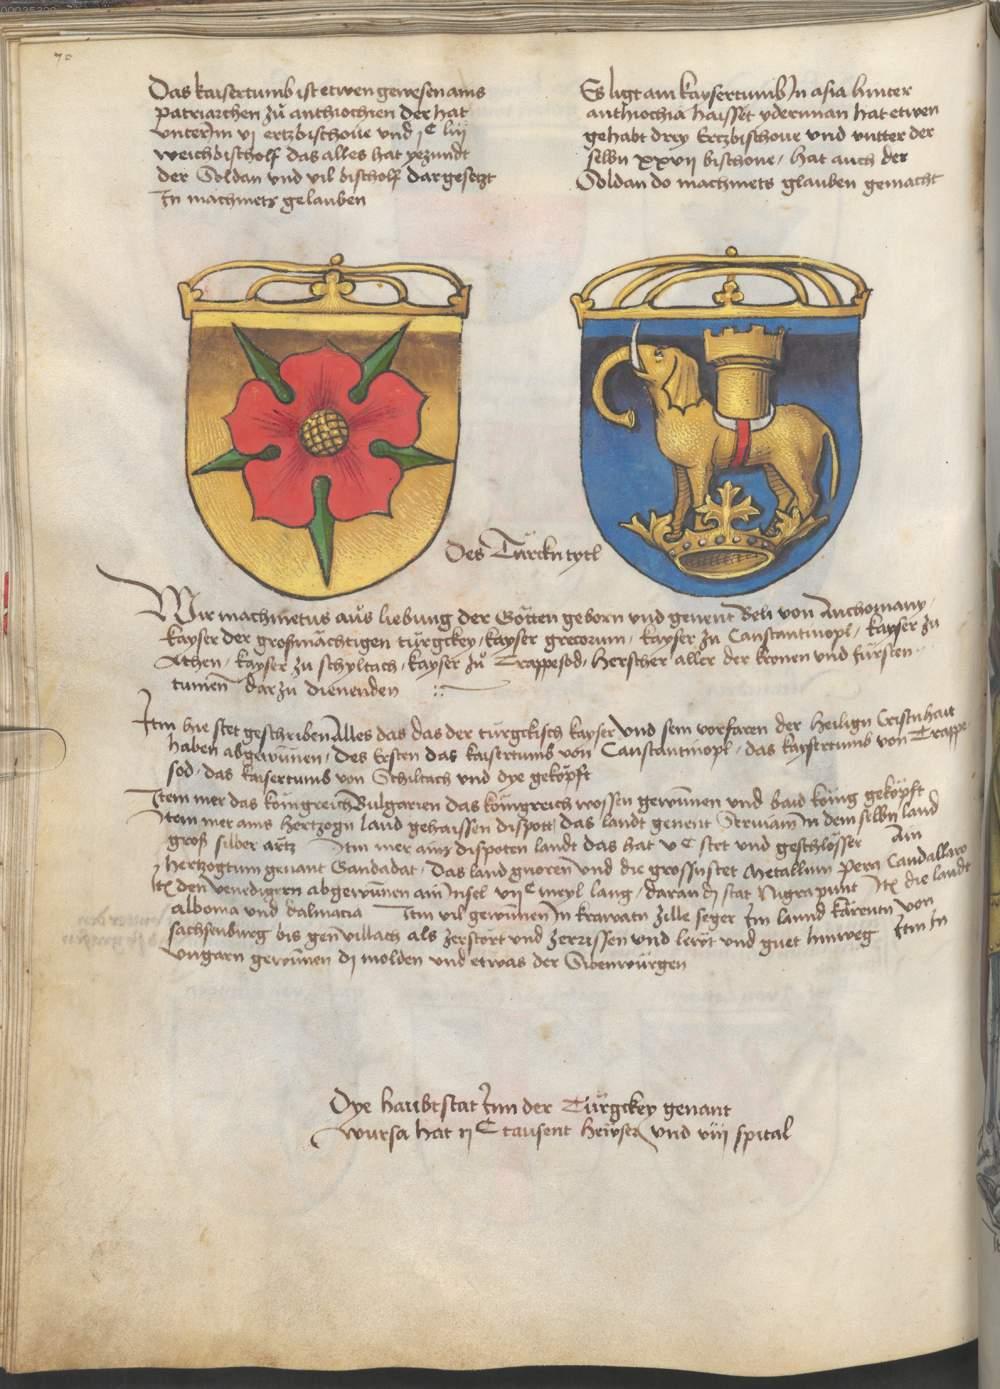 70
Das kaisertumb ist etwen gewesen ains
patriarchen zů anthiochien der hat
unter Im vj ertzbischove und jc liij
weichbischolf das alles hat yezundt
der Soldan und vil bischolf dargesetzt
In machmetz gelauben
Es ligt ain kaysertumb In asia hinter
anthiochia haisset yderman hat etwen
gehabt drey Erczbischove und unter der
selbn xxvij bischove / hat auch der
Soldan do machmets glauben gemacht
Des Türckn tytl
Wir machmetus aůs liebung der Götten geborn und genent Beli von Anchomany /
kayser der grosmächtigen türgckey / kayser grecorum / kayser zu Constantinopl / kayser zu
Athen / kayser zu schyltach / kayser zů Trappesod / herscher aller der kronen und fürsten
tumen dar zu dienenden
Itm hie stet geschriben Alles das das der türgckisch kayser und sein vorfaren der heilign Cristnhait
haben abgewünen / Des Ersten das kaisertumb von Constantinopl / das kaysertumb von Trappe
sod / das kaisertumb von Schiltach und dye geköpft
Item mer das königreich Bulgarien das königreich wossen gewunnen und baid könig geköpft
Item mer ains hertzogn land gehaissen dispott / das landt genent Serviam In dem selbn land
groß silber ärtz Itm mer ains dispoten landt das hat vc stet und geschlösser Ain
hertzogtum genant Gandadat / Das land gnoren und die grossustet Metallim Pera Candallaro
Itm den venedigern abgewunen ain Insel vijc meyl lang / daran die stat Nigrapunt Itm die landt
albonia und dalmacia Itm vil gewunnen In krawatn zille seger Im lannd kärentn von
sachsenburg bis gen villach als zerstört und zerrissen und lewt und guet hinweg Itm In
ungarn gewunen die molden und etwas der Sibenwürgen
Dye haubtstat Inn der Türgckey genant
wursa hat ijc tausent heüser und viij spital